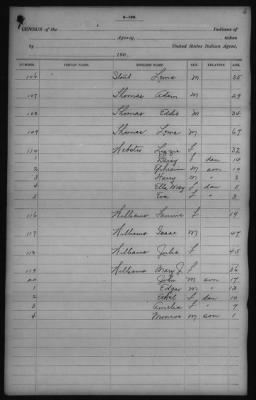 5-128.
CENSUS of the Indians of
Agency, taken
by United States Indian Agent,
190
NUMBER INDIAN NAME ENGLISH NAME SEX RELATION AGE
106 M 35
107 Thomas Adam M 29
108 Thomas Eddie M 34
109 Thomas M 69
110 Webster Lizzie F 32
1 Daisy F dau 14
2 Ephraim M son 10
3 Harry M " 8
4 Ella May F dau 5
5 Eva F " 3
116 Williams F 19
117 Williams Isaac M 49
118 Williams Julia F 45
119 Williams Mary J. F 36
20 John M son 17
1 Edgar M " 13
2 Ethel F dau 10
3 Amelia F " 7
4 Monroe M son 1